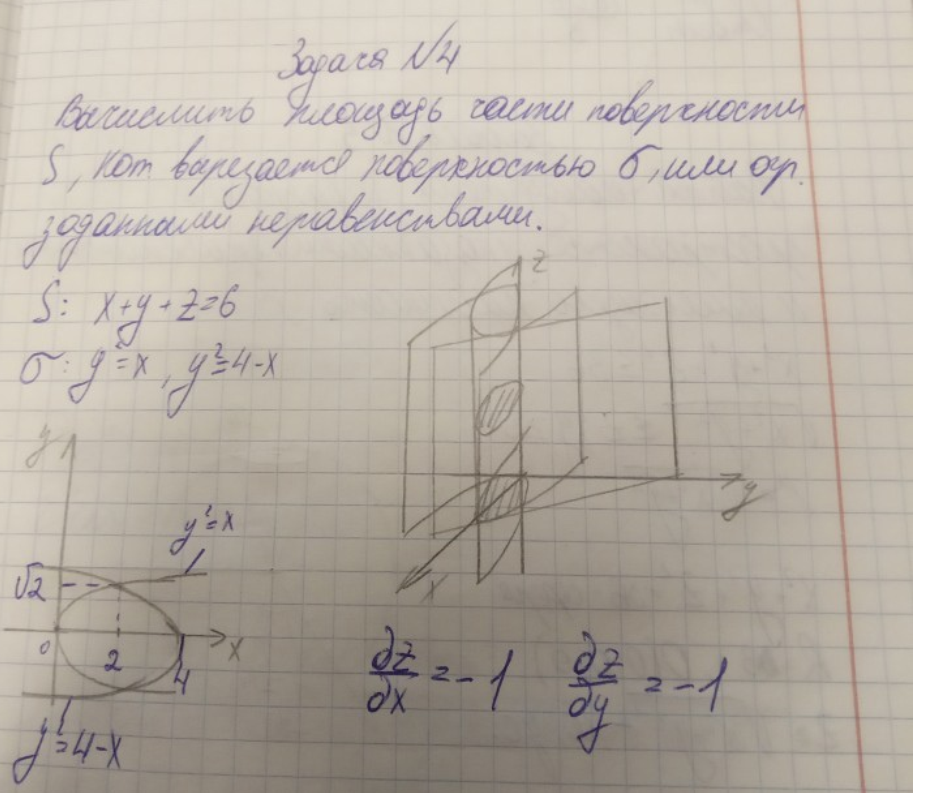 Задача №4
Вычислить площадь части поверхности
S, кот вырезается поверхностью σ, или огр.
заданными неравенствами.
S: x+y+z=6
σ: y²=x, y²=4-x
z
y
x
y
y²=x
√2
0
2
4
x
y²=4-x
∂z/∂x = -1 ∂z/∂y = -1